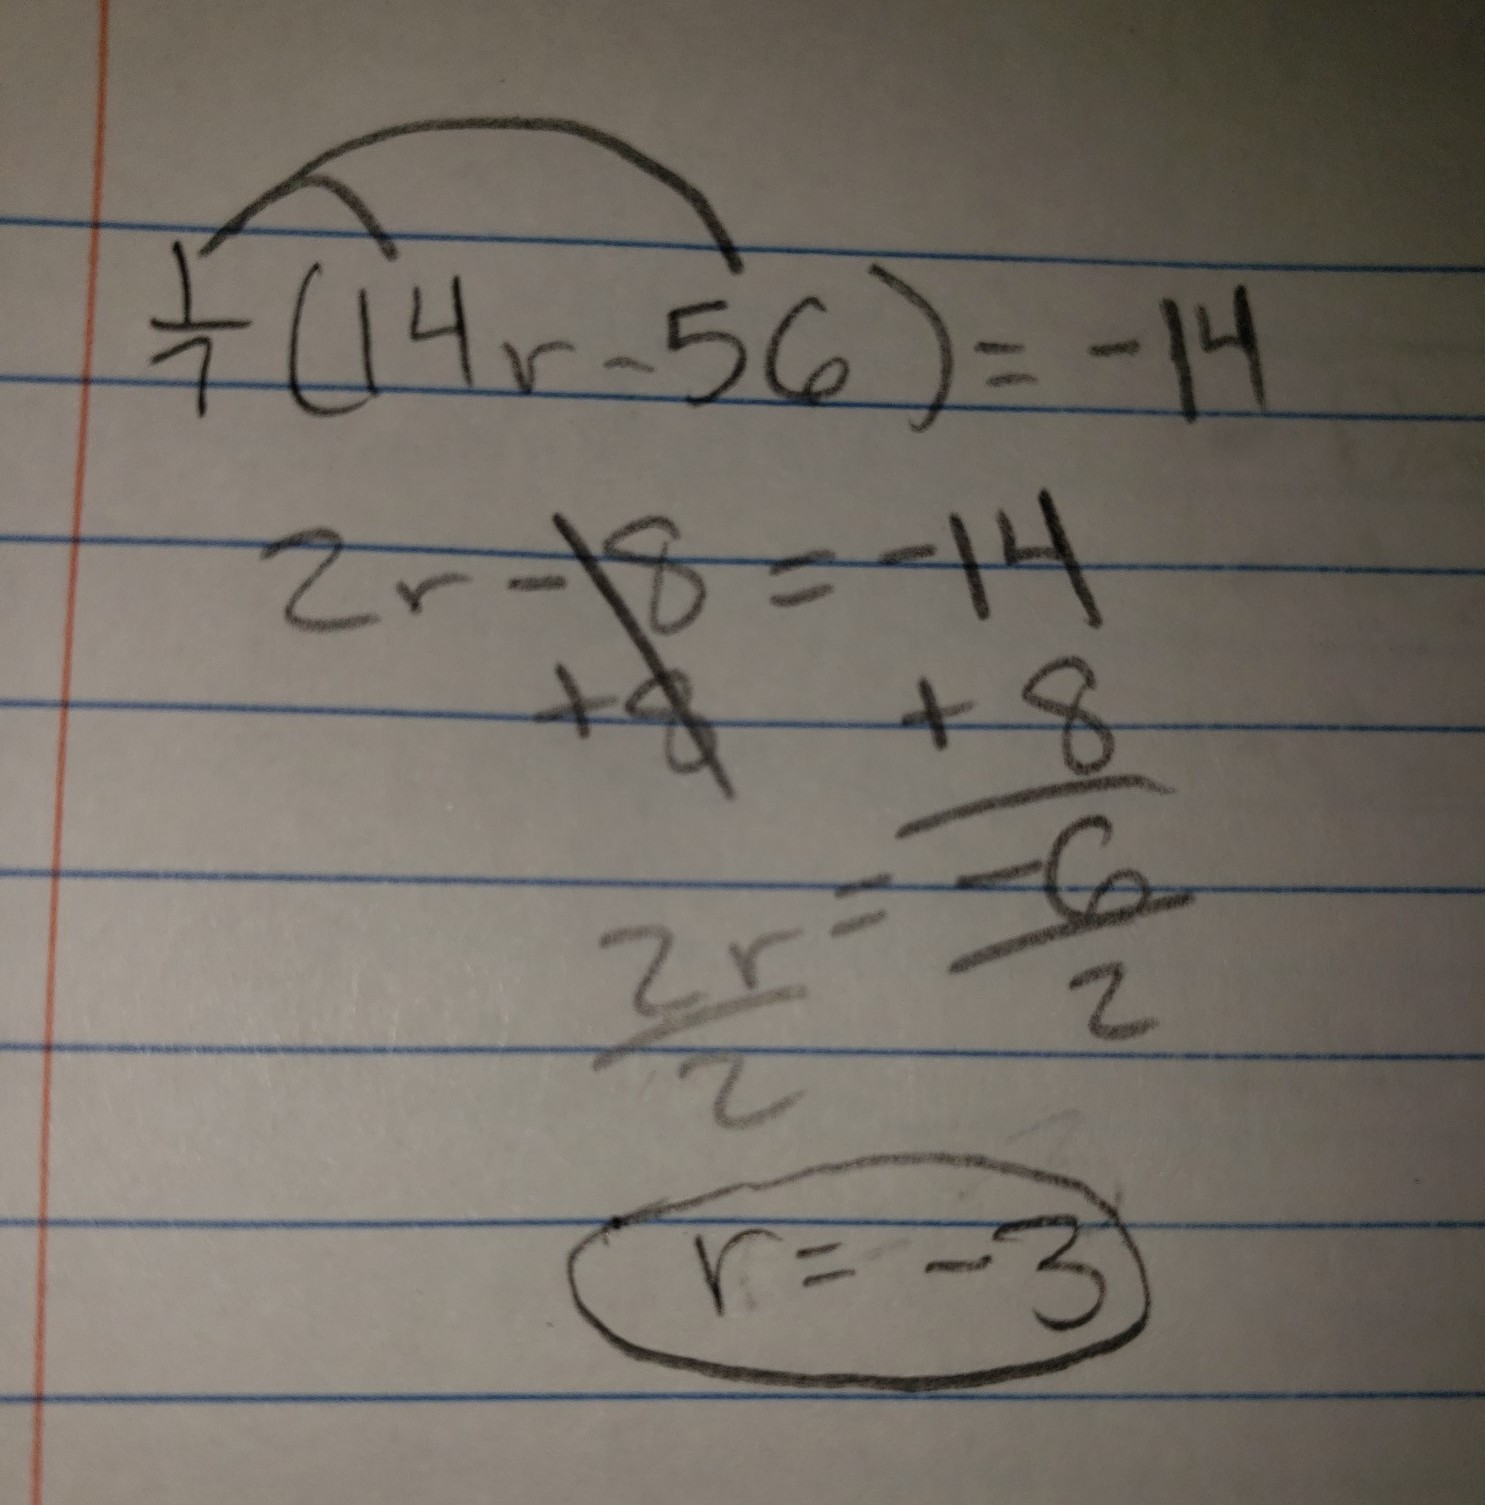 1/7 (14r - 56) = -14
2r - 8 = -14
+8 + 8
2r/2 = -6/2
r = -3